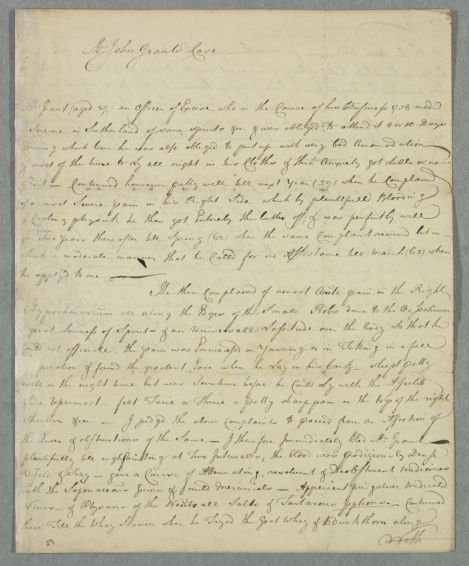 Mr John Grants Case
Mr Grant (aged 37) an Officer of Excise, who in the Course of his Business 1758 made
Seizure in Sutherland of some Spirits &c & was obliged to attend it 8 or 10 Days
during which time he was also obliged to put up with very bad Accomodation
& most of the time to Ly all night in his Cloths & thro' Anxiety got little or no
Rest — Continued however pretty well till next Year (59) when he Complained
of a most Severe pain in his Right Side which by plentifull Bleeding
& Cooling physick he then got Entirely the better off, & was perfectly well
for Two Years thereafter till Spring (62) when the same Complaint revived but in
such a moderate manner that he Called for no Assistance till March (63) when
he applyd to me —
He then Complained of a most Acute pain in the Right
Hypochondrium all along the Edges of the Small Ribs down to the Os Ischium
great Lowness of Spirits & an Universall Lassitude over the Body so that he
could not the pain was Encreased on Yawning or in Taking in a full
Inspiration & found the greatest Ease when he Lay on his Back — Sleept pretty
well in the night time but was Sometime before he Could Ly with the Affected
Side Uppermost — felt Twice or Thrice a pretty sharp pain in the top of the right
Shoulder &c — I judged the above Complaints to proceed from an Affection of
the Liver & obstructions of the Same — I therefore Immediately Bled Mr Grant
plentifully, at Two Intervals, the Blood was prodigiously Dense
& Sizy — gave a Course of Attenuating, resolvent & Deobstruent medicines
with the Saponaceous Gums & mild Mercurials — Apperient purgatives
& of the Neutrall Salts & Tartareous — Continued
these Till the Whey Season when he Tryed the Goat Whey & Buckthorn along
with